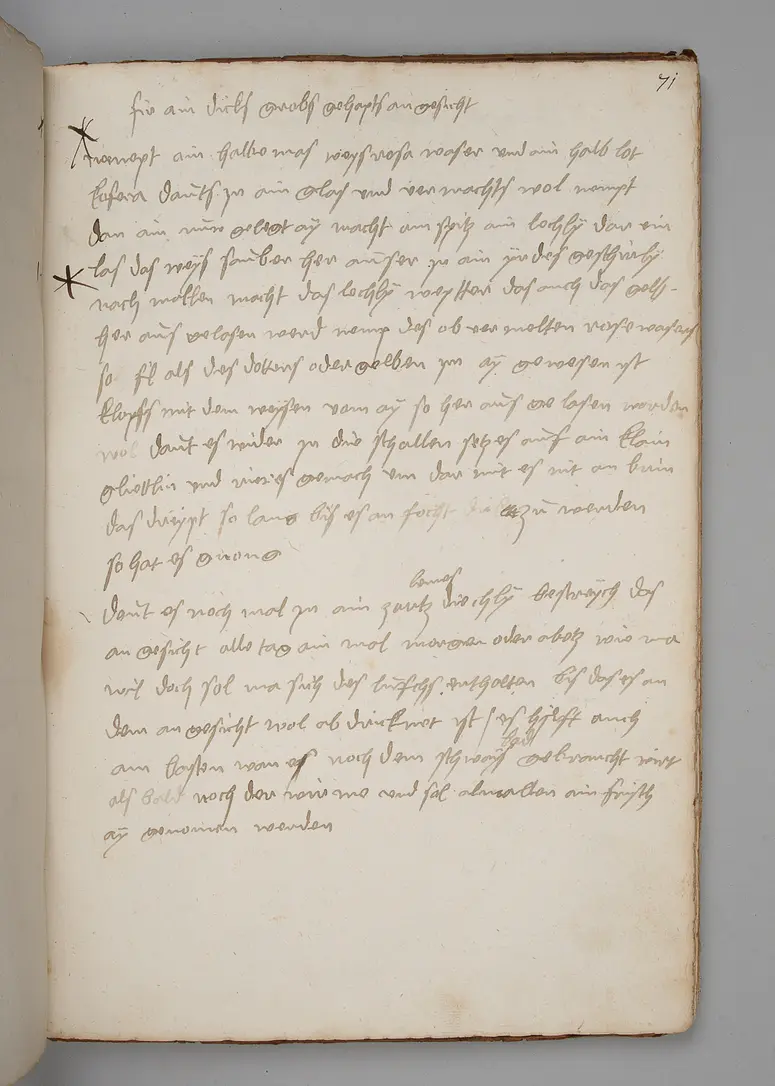 71
fir ain dicks grobs gehapts angesicht
nempt ain halbe mas weys rosa waser und ain halb lot
kofera dauts in ain glas und vermachts wol nempt
dan ain nuw gelegt ay macht am spitz ain lochly dar ein
las das weys sauber her auser in ain yrdes geschirly
nach mallen macht das lochly weytter das auch das gelb
her aus gelosen werd nemp des ob vermelten rosewasers
so fil als des dotters oder gelben in ay gewesen ist
klopfs mit dem weysen vom ay so her aus gelasen worden
wol daut es wider in die schallen setz es auf ain klain
gliettlin und rier es gemach um dar mit es nit an brin
das dreypt so lang bis es an focht dick zu werden
so hat es gnong
dout es noch mal in ain zartz diechly bestreych das
leines
an gesicht alle tag ain mol morgen oder abetz wie ma
wil doch sol ma sich des lufschs enthalten bis das es an
dem angesicht wol ab dricknet ist / es hilft auch
am basten wan es noch dem schways gebraucht wirt
bad
als bald noch der wirme und sol almallen ain frisch
ay genomen werden